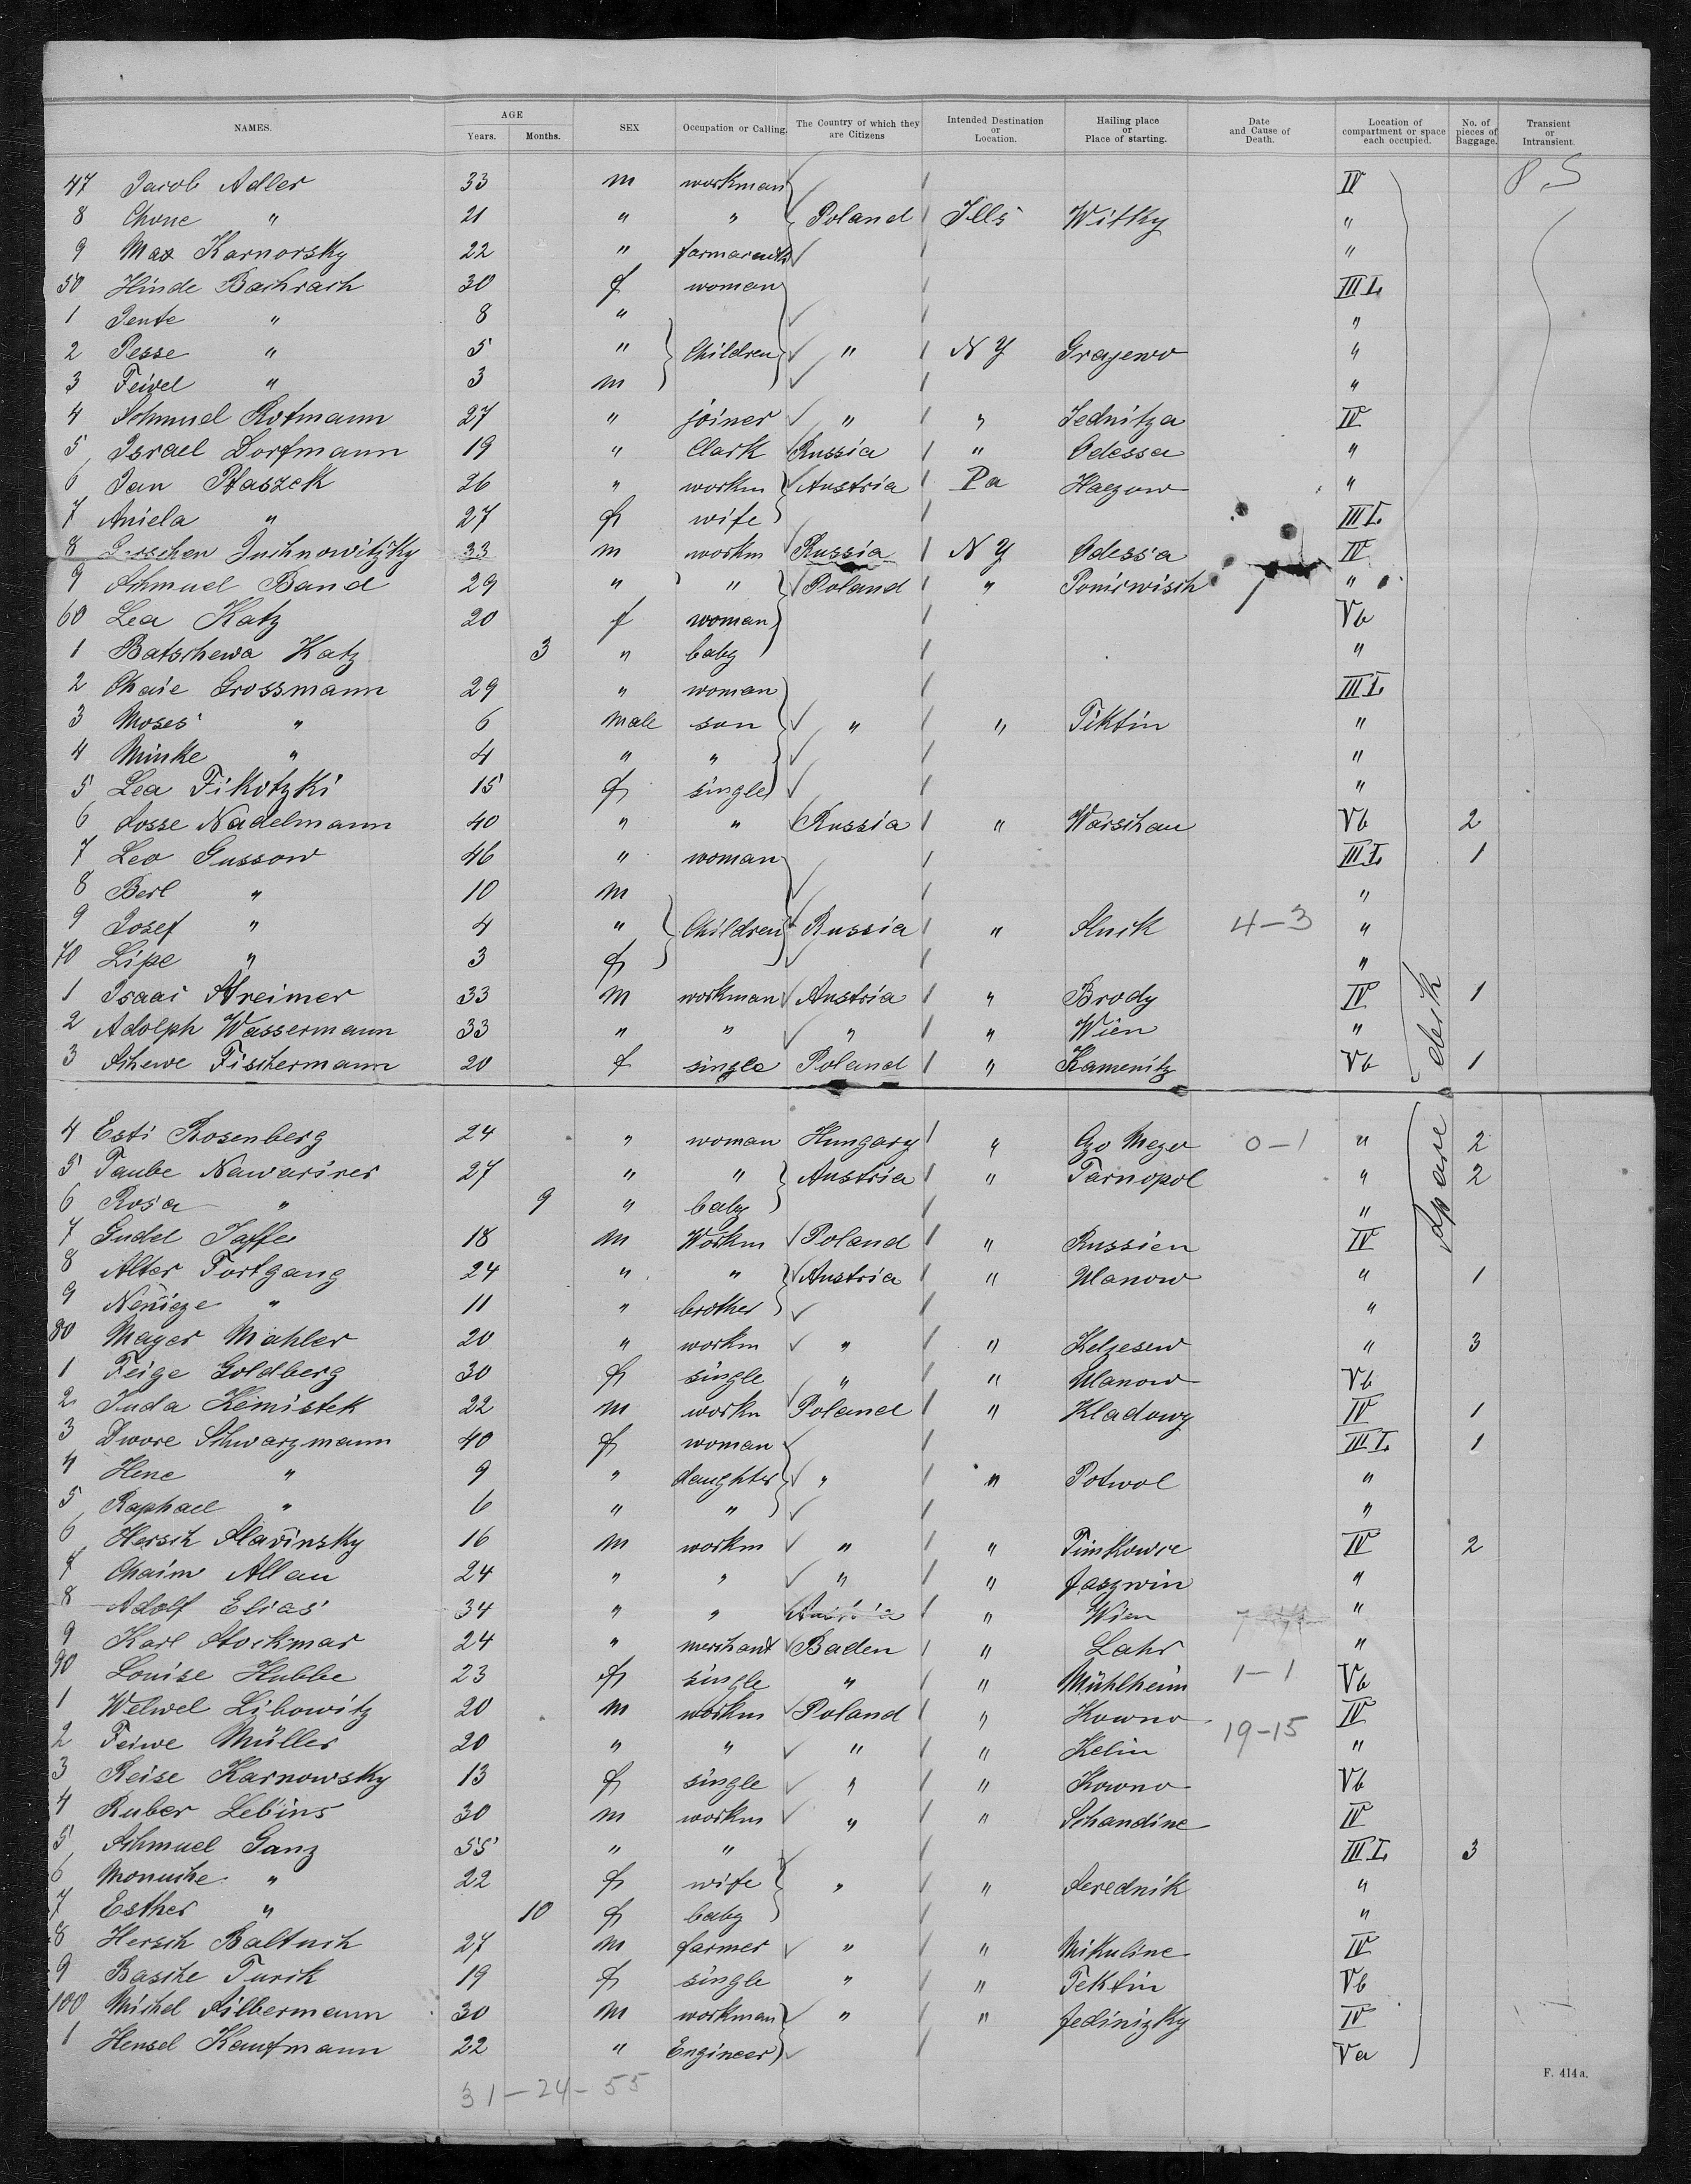 NAMES. AGE Years. Months. SEX Occupation or Calling. The Country of which they are Citizens Intended Destination or Location. Hailing place or Place of starting. Date and Cause of Death. Location of compartment or space each occupied. No. of pieces of Baggage. Transient or Intransient.
47 Jacob Adler 33 m workman IV P.S
8 Chone " 21 " " Poland Ills Witky "
9 Max Karnorsky 22 " "
50 Hinde Bachrach 30 f woman III L
1 Jente " 8 " "
2 Pesse " 5 " Children " N Y Grajewo "
3 Feivel " 3 m "
4 Schmuel Rotmann 27 " joiner " " Jednitza IV
5 Israel Dorfmann 19 " Clark Russia " Odessa "
6 Jan Ptaszek 26 " workm Austria Pa Haczow "
7 Aniela " 27 f wife III L
8 Juchnowitzky 33 m workm Russia N Y Odessa IV
9 Schmuel Band 29 " " Poland " Poniewisch "
60 Lea Katz 20 f woman Vb
1 Batschewa Katz 3 " baby "
2 Chaie Grossmann 29 " woman III L
3 Moses " 6 male son " " Tiktin "
4 Minke " 4 " " "
5 Lea Fikotzki 15 f single "
6 Sosse Nadelmann 40 " " Russia " Warschau Vb 2
7 Leo Gussow 46 " woman III L 1
8 Berl " 10 m "
9 Josef " 4 " Children Russia " Sluik 4-3 "
70 Lipe " 3 f "
1 Isaac Streimer 33 m workman Austria " Brody IV 1
2 Adolph Wassermann 33 " " " " Wien "
3 Schewe Fischermann 20 f single Poland " Kamenitz Vb 1
4 Esti Rosenberg 24 " woman Hungary " 0-1 " 2
5 Taube Nawarirer 27 " " Austria " Tarnopol " 2
6 Rosa " 9 " baby "
7 Gudel Jaffe 18 m Workm Poland " Russien IV
8 Alter Fortgang 24 " " Austria " Ulanow " 1
9 " 11 " brother "
80 Mayer Mahler 20 " workm " " Kelzesew " 3
1 Feige Goldberg 30 f single " " Ulanow Vb
2 Juda Kemistek 22 m workm Poland " Kladowy IV 1
3 Dwore Schwarzmann 40 f woman III L 1
4 Hene " 9 " daughter " " Potwol "
5 Raphael " 6 " " "
6 Hersch Slavinsky 16 m workm " " Timkowce IV 2
7 Chaim Allau 24 " " " " Jaszwin "
8 Adolf Elias 34 " " Austria " Wien "
9 Karl Stockmar 24 " merchant Baden " Lahr "
90 Louise Hubbe 23 f single " " Mühlheim 1-1 Vb
1 Welwel Libowitz 20 m workm Poland " Kowno IV
2 Feiwe Müller 20 " " " " Kelin 19-15 "
3 Reise Karnowsky 13 f single " " Kowno Vb
4 Ruber Lebins 30 m workm " " Schandine IV
5 Schmuel Ganz 55 " " III L 3
6 Monuche " 22 f wife " " Serednik "
7 Esther " 10 f baby "
8 Hersch Baltuch 27 m farmer " " Mikuline IV
9 Basche Turik 19 f single " " Tektin Vb
100 Michel Silbermann 30 m workman " " Jedinizky IV
1 Hensel Kaufmann 22 " Engineer Va
31-24-55
F. 414 a.